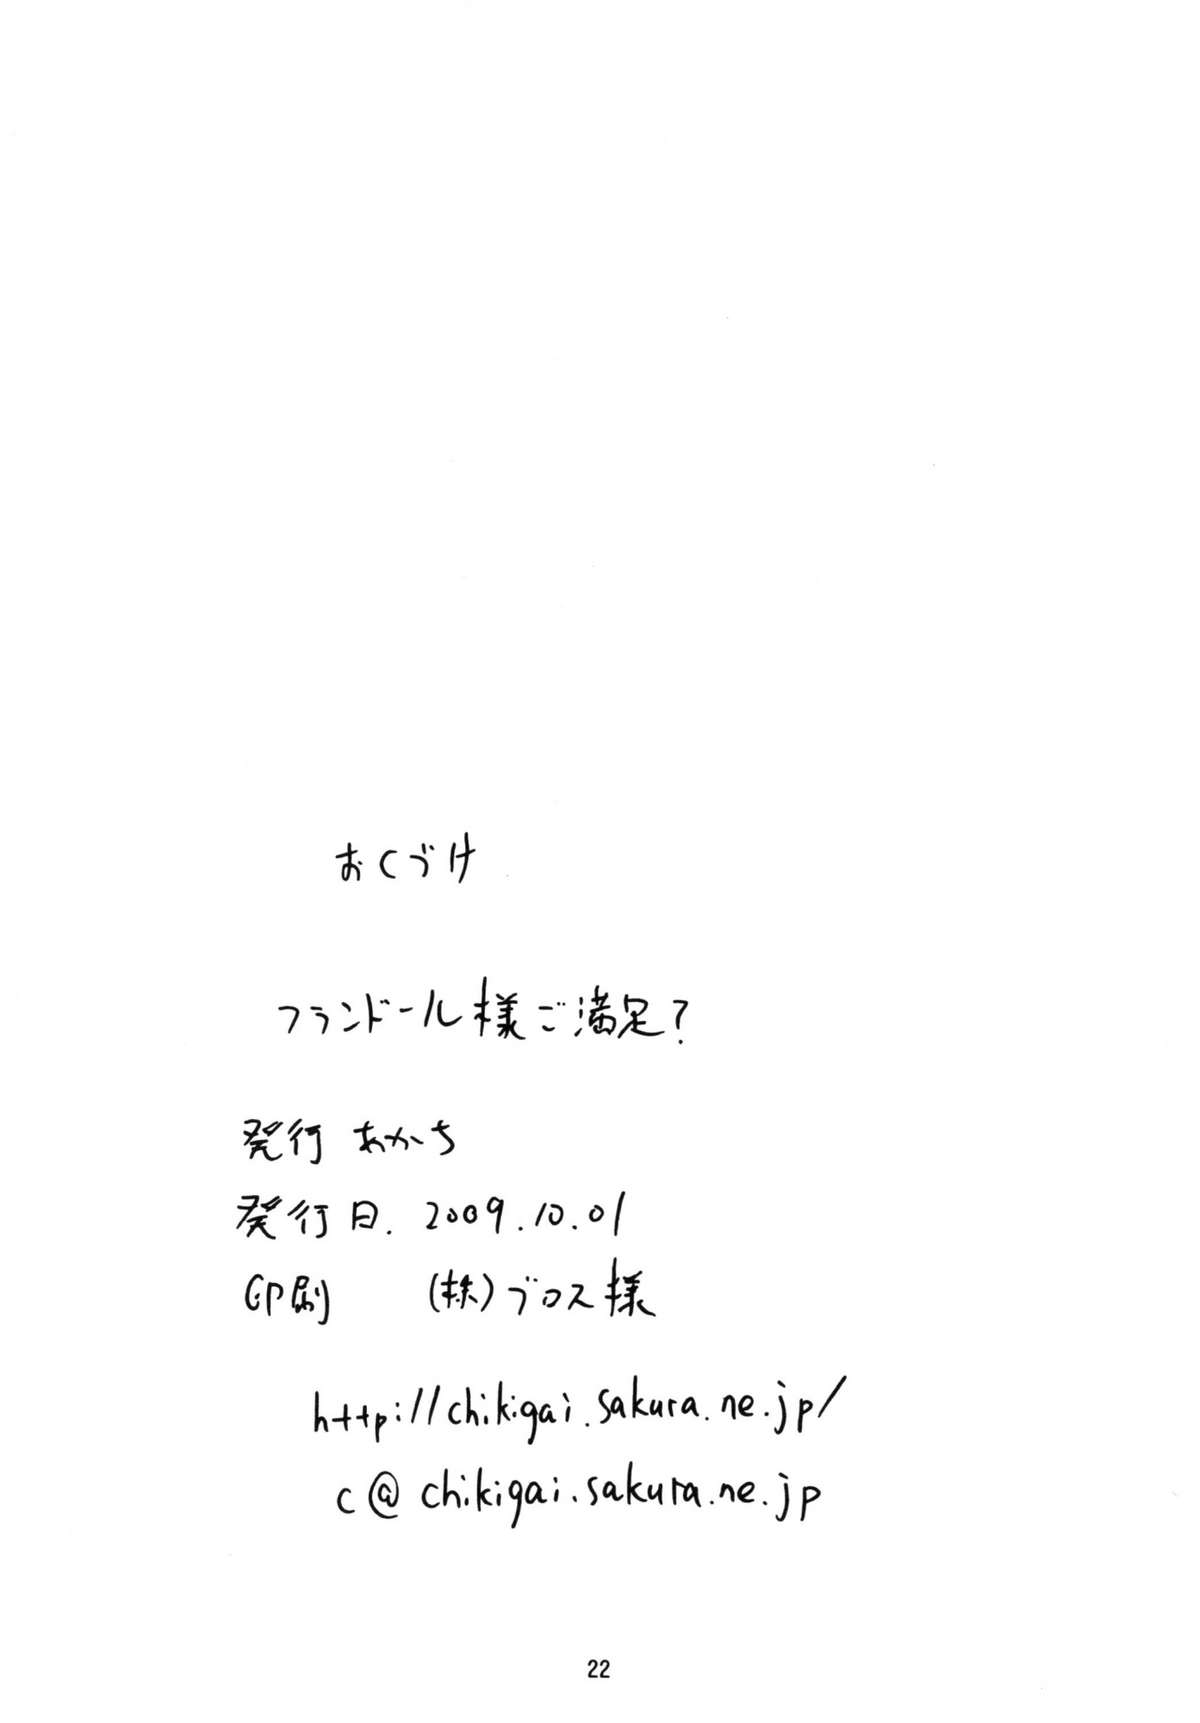 おくづけ
フランドール様ご満足?
発行 あかち
発行日. 2009.10.01
印刷 (株)ブロス様
http://chikigai.sakura.ne.jp/
c@chikigai.sakura.ne.jp
22